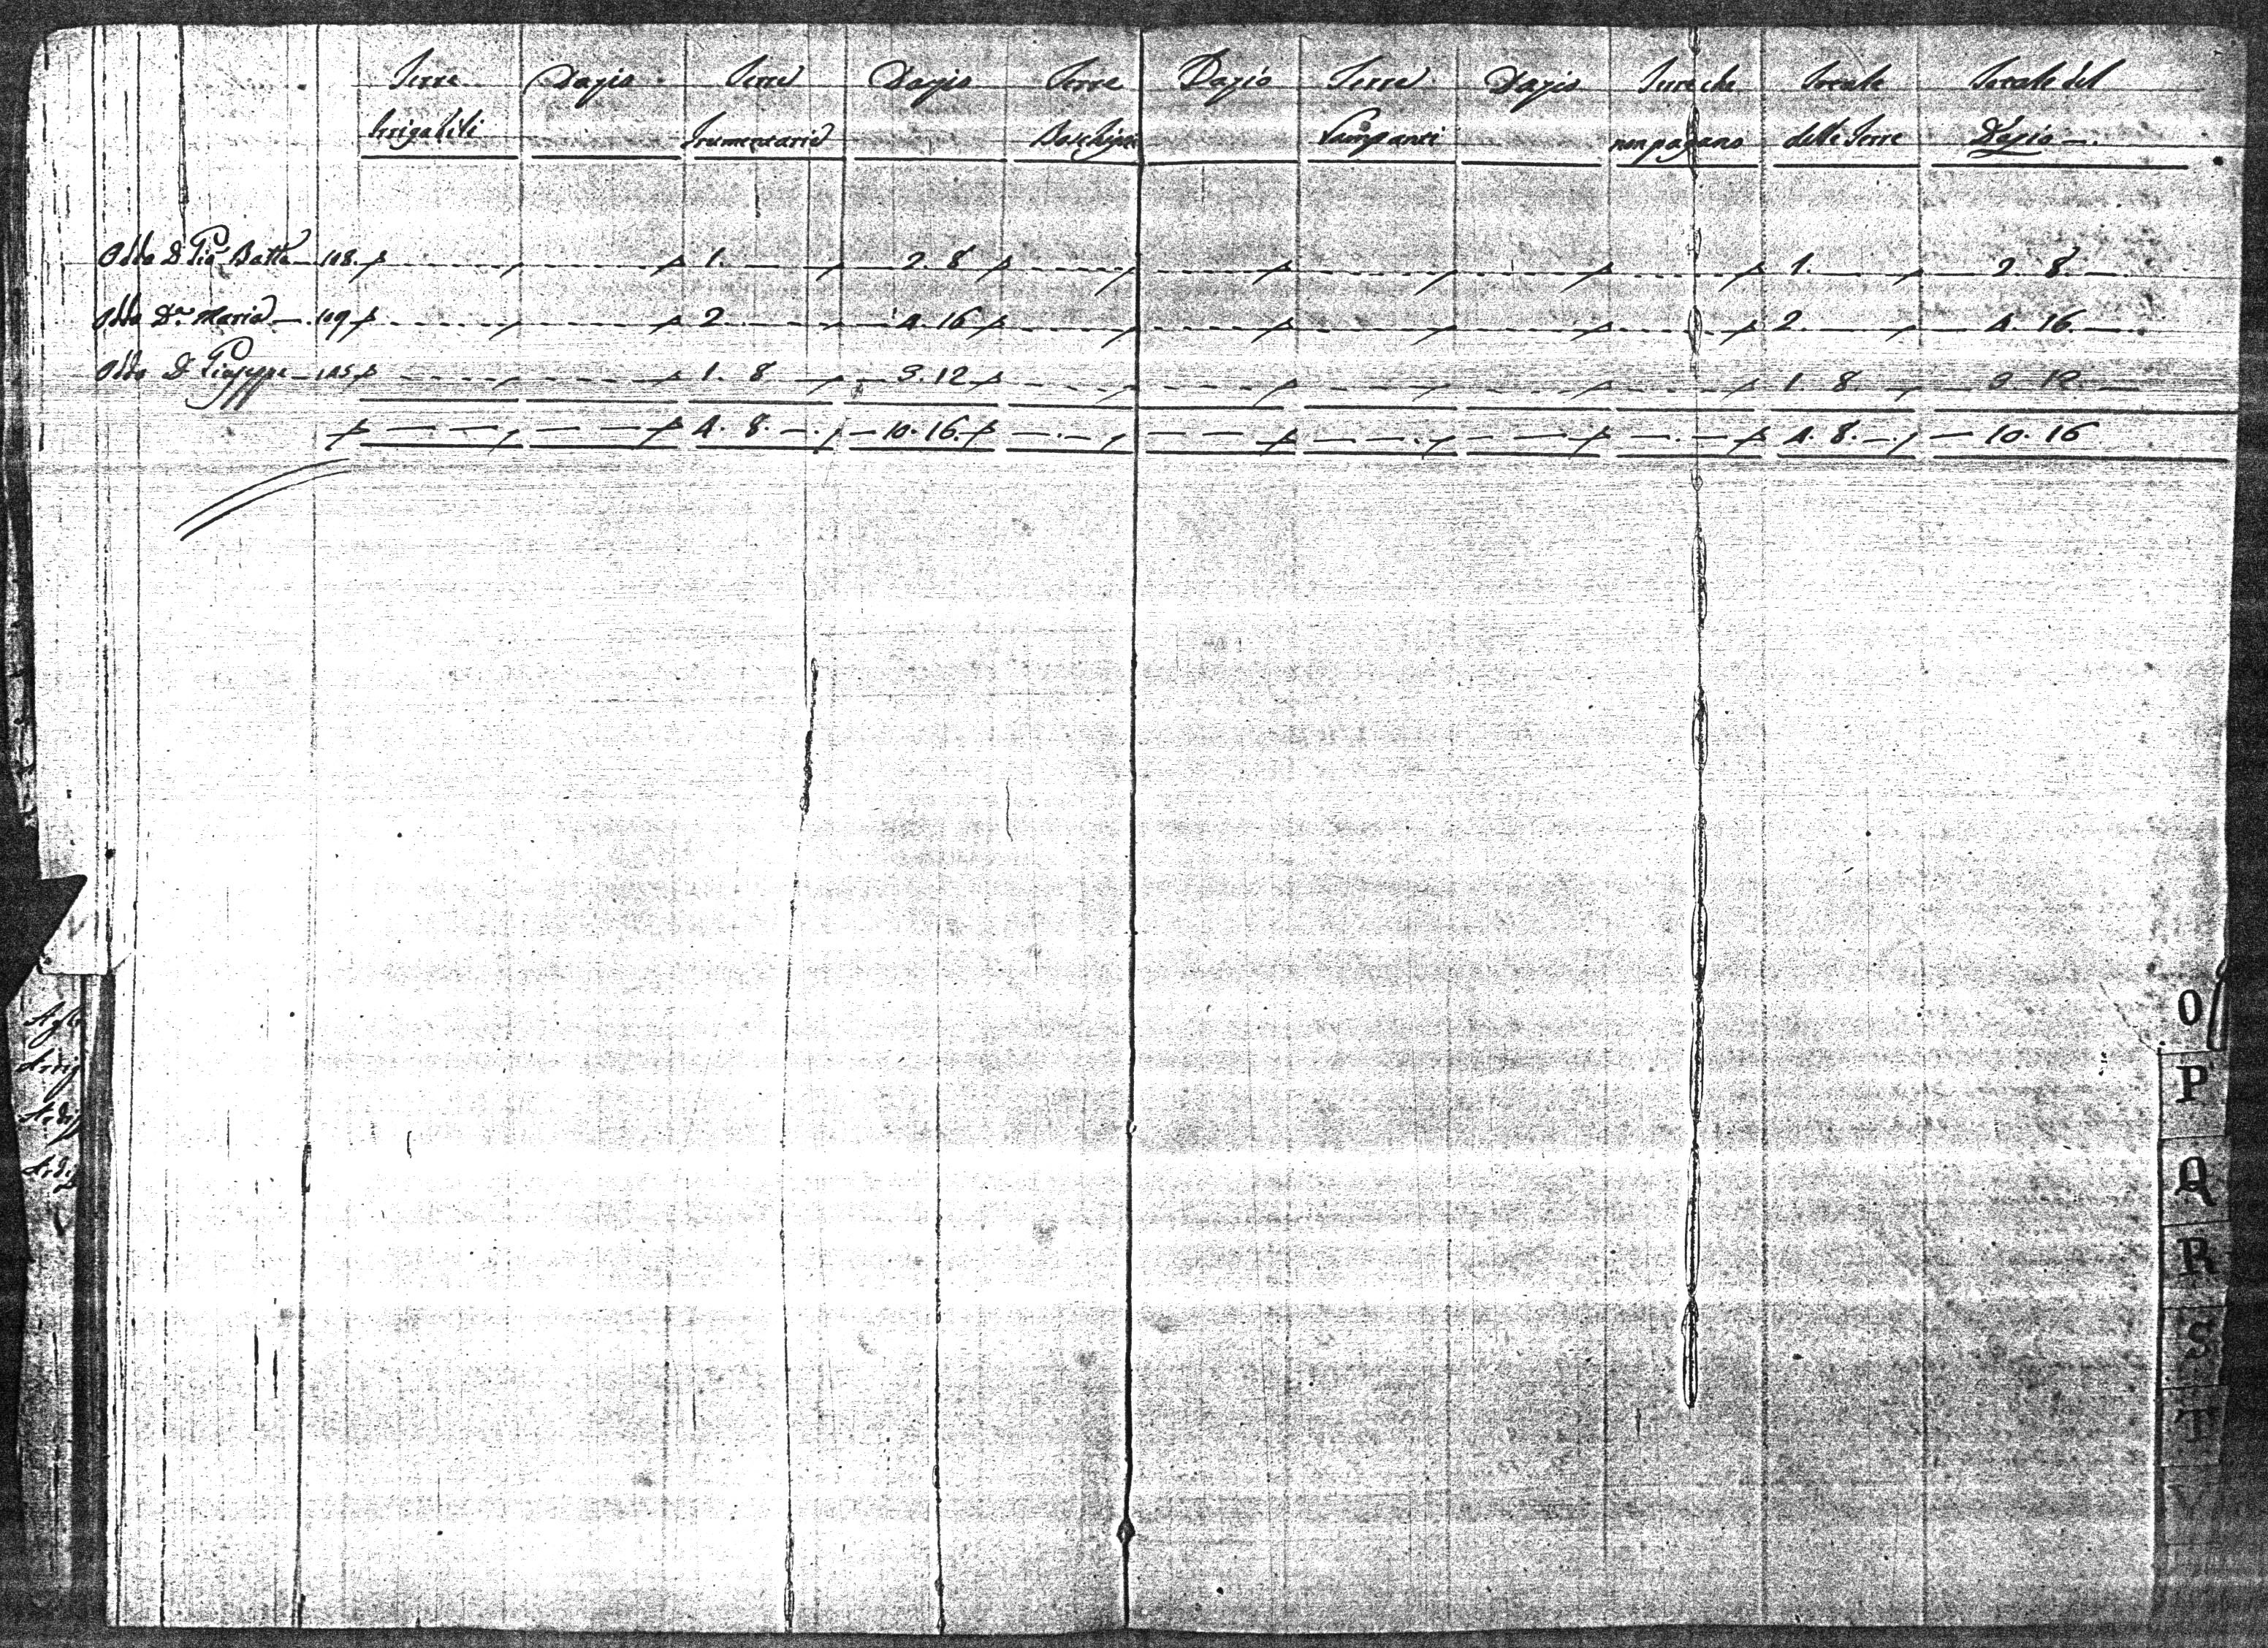 Terre Dazio Terre Dazio Terre Dazio Terre Dazio Terre che Totale Totale del
Irrigabili Frumentarie Boschigni non pagano delle Terre Dazio —.
Oddo D. Gio. Batta — 108. 1. — 2. 8 1. — 2. 8 —
Oddo D.a Maria — 109 2 — 4. 16 2. — 4. 16 —
Oddo D. Giuseppe — 1. 8 3. 12 1. 8 3. 12 —
4. 8. — 10. 16. 4. 8. — 10. 16
O
P
Q
R
S
T
V